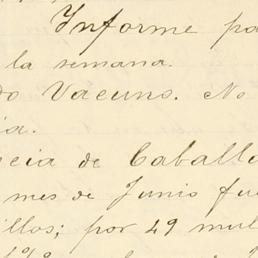 Informe pa
la semana.
do Vacuno. No
ia.
cia de Caballa
mes de Junio fue
illos; por 49 mul